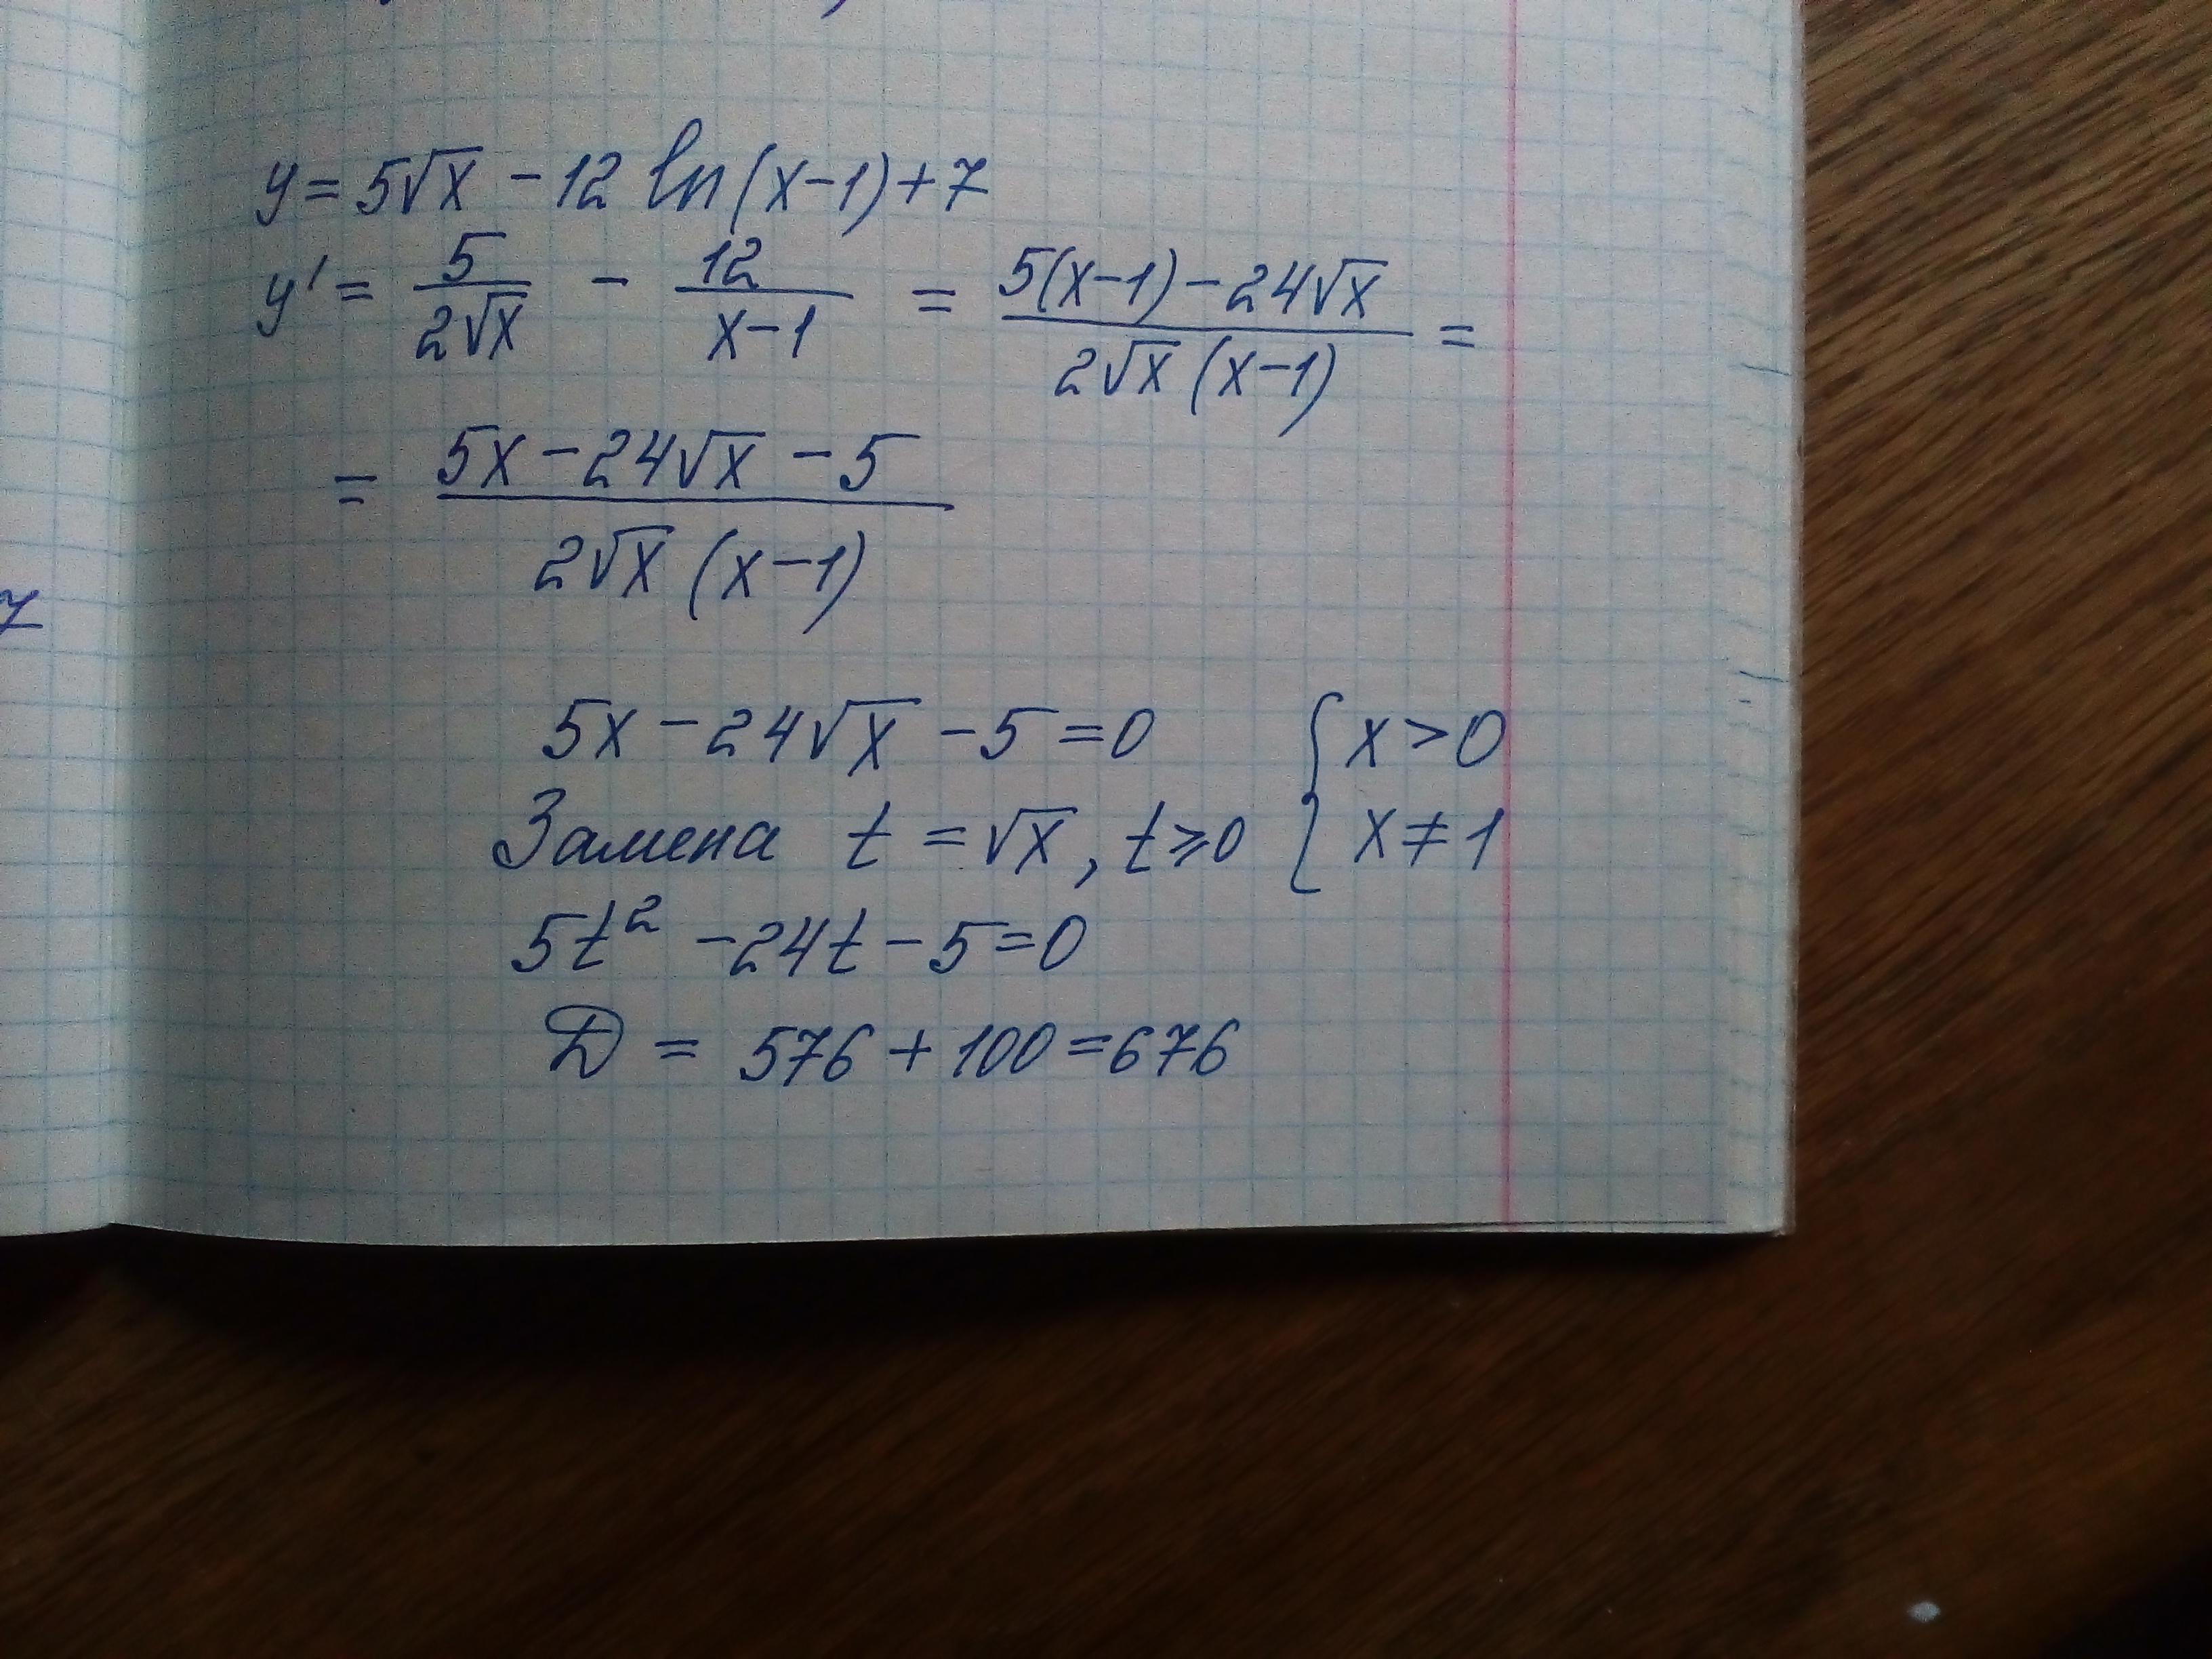 y = 5√x − 12 ln(x−1) + 7
y' = 5/(2√x) − 12/(x−1) = (5(x−1) − 24√x)/(2√x (x−1)) =
= (5x − 24√x − 5)/(2√x (x−1))
7
5x − 24√x − 5 = 0 { x > 0
Замена t = √x, t ⩾ 0 x ≠ 1
5t² − 24t − 5 = 0
D = 576 + 100 = 676